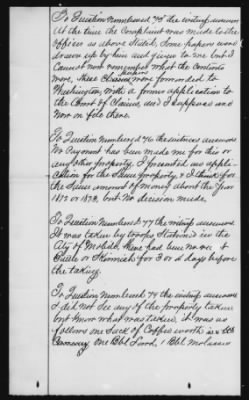 To Question Numbered 45 the witness answers
At the time the Complaint was made to the
Officer as above Stated, Some papers were
drawn up by him and given to me but I
Cannot now remember what the Contents
were, these papers were forwarded to
Washington, with a former application to
the Court of Claims, as I suppose and
Now on file there.
To Question Numbered 46 the witness answers
No Payment has been made me for this or
any other property. I presented an appli-
cation for the Same property & I think for
the Same amount of money about the Year
1872 or 1873, but No decision made.
To Question Numbered 47 the witness answers
It was taken by troops Stationed in the
City of Mobile, there had been no
Battle or Skirmish for 3 or 4 days before
the taking.
To Question Numbered 74 the witness answers
I did not See any of the property taken
but know what was taken, it was as
follows one Sack of Coffee worth
Currency One Bbl Lard, 1 Bbl Molasses